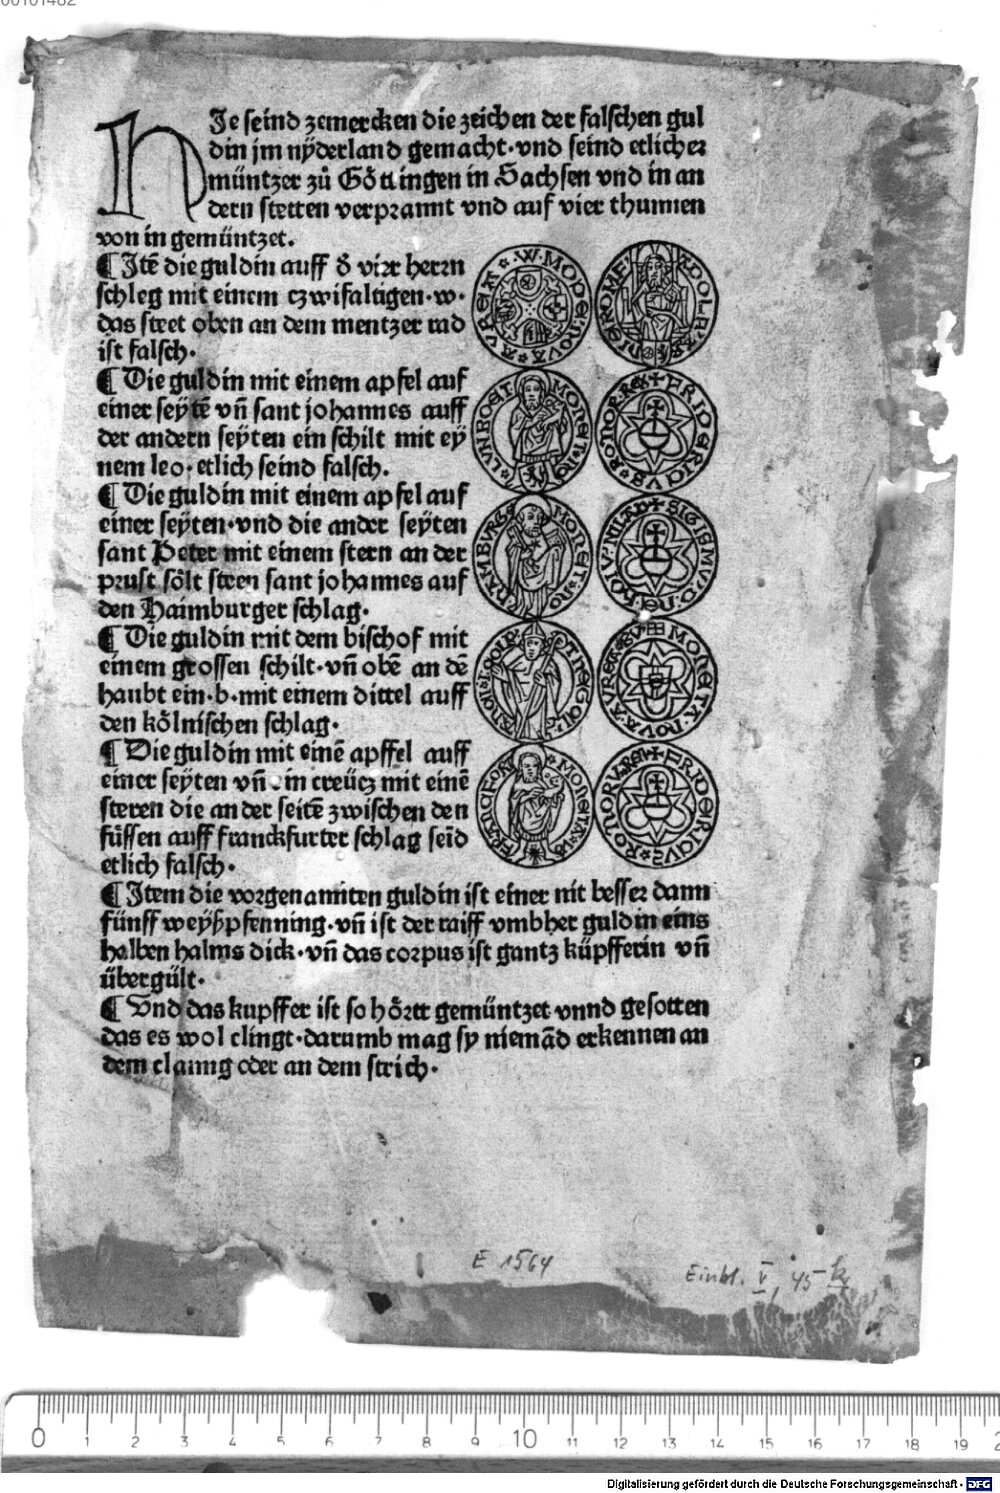 00101482
HIe seind zemercken die zeichen der falschen gul
din jm nÿderland gemacht·vnd seind etlicher
müntzer zů Gőttingen in Sachsen vnd in an
dern stetten verprannt vnd auf vier thunnen
von in gemüntzet.
¶ Itē die guldin auff d̄ vier herrn
schleg mit einem czwifaltigen·w·
das steet oben an dem mentzer rad
ist falsch·
¶ Die guldin mit einem apfel auf
einer seÿtē vn̄ sant johannes auff
der andern seÿten ein schilt mit eÿ
nem leo·etlich seind falsch.
¶ Die guldin mit einem apfel auf
einer seÿten·vnd die ander seÿten
sant Peter mit einem stern an der
prust sőlt steen sant johannes auf
den Haimburger schlag·
¶ Die guldin mit dem bischof mit
einem grossen schilt·vn̄ obē an dē
haubt ein·b·mit einem dittel auff
den kőlnischen schlag·
¶ Die guldin mit einē apffel auff
einer seÿten vn̄ in creücz mit einē
steren die ander seitē zwischen den
füssen auff franckfurter schlag seīd
etlich falsch·
¶ Item die vorgenannten guldin ist einer nit besser dann
fünff weÿßpfenning·vn̄ ist der raiff vmbher guldin eins
halben halms dick·vn̄ das corpus ist gantz küpfferin vn̄
übergült·
¶ Vnd das kupffer ist so hőrtt gemüntzet vnnd gesotten
das es wol clingt·darumb mag sy niemād erkennen an
dem clanng oder an dem strich·
E 1564
Einbl. V, 45 k
0 1 2 3 4 5 6 7 8 9 10 11 12 13 14 15 16 17 18 19
Digitalisierung gefördert durch die Deutsche Forschungsgemeinschaft · DFG